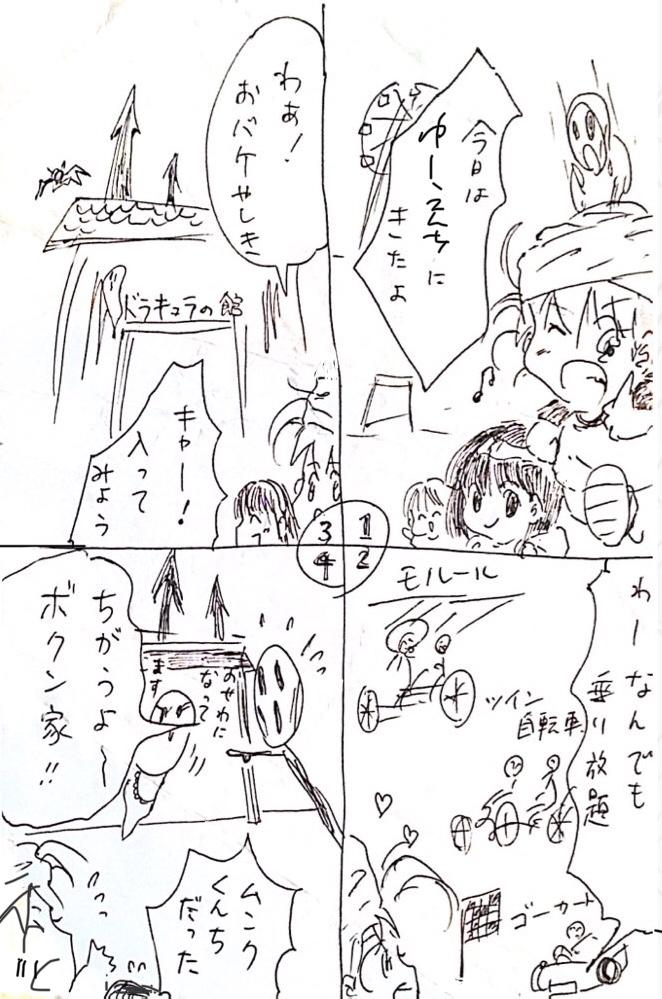 1
今日は
ゆーえんちに
きたよ
2
わーなんでも
乗り放題
モルール
ツイン
自転車
ゴーカート
3
わぁ!
おバケやしき
ドラキュラの館
キャー!
入って
みよう
4
おせわに
なって
ます
ちがうよ〜
ボクン家!!
ムンク
くんち
だった